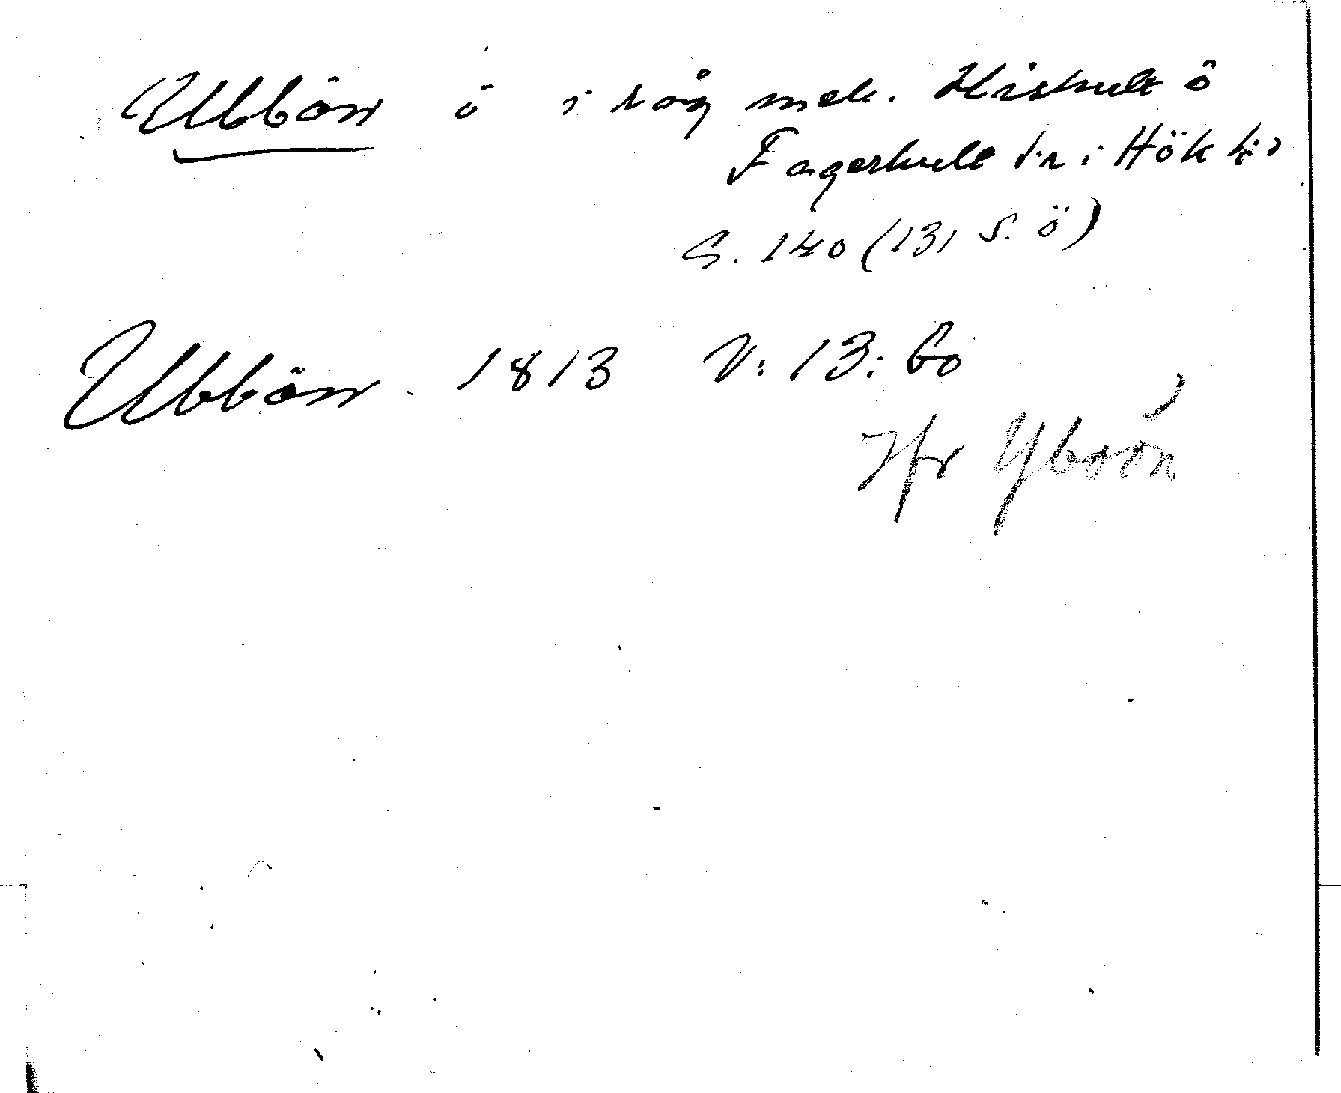 Ubbön ö i råg mell. Hishult o
Fagerhult s:n i Hök h:d
G. 140 (131 S. ö)
Ubbön 1813 V: 13: 60
Jfr Yboön